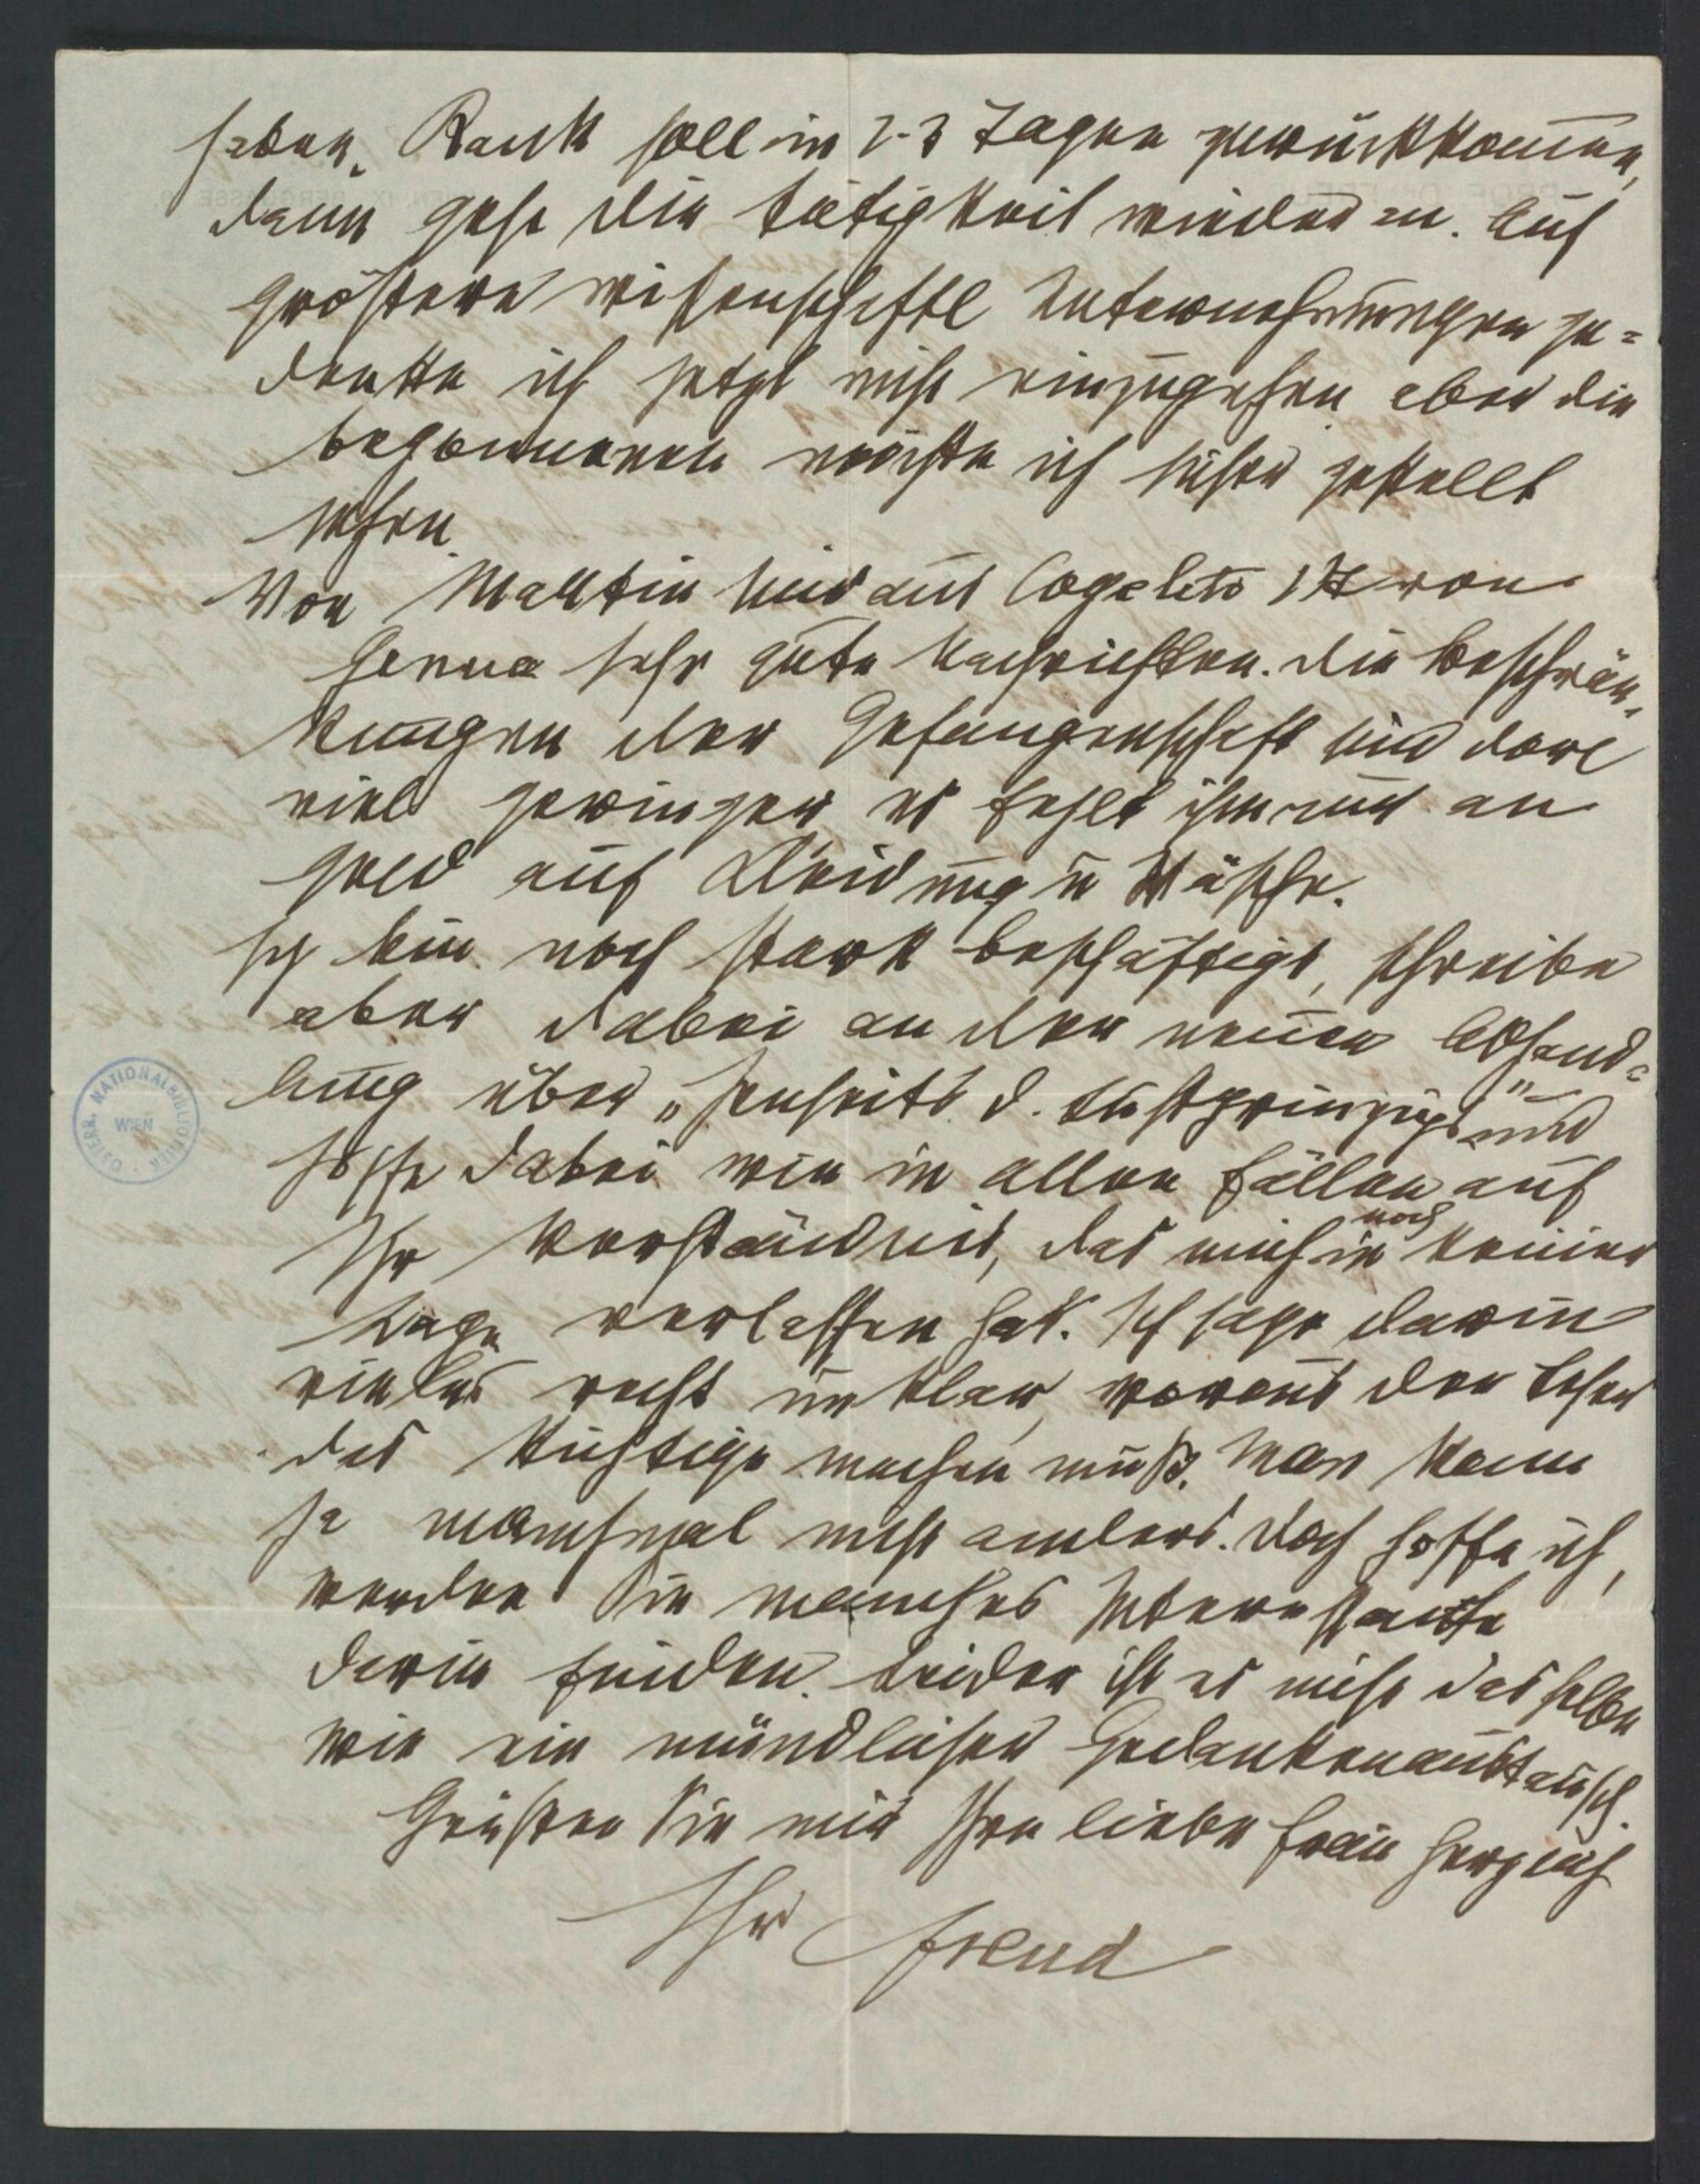 haben. Rank soll in 2-3 Tagen zurückkommen,
dann geht die Tätigkeit wieder an. Auf
größere wissenschaftl Unternehmungen ge=
denke ich jetzt nicht einzugehen aber die
begonnenen möchte ich sicher gestellt
sehen.
Von Martin sind aus Cogoleto bei
Genua sehr gute Nachrichten. Die Beschrän-
kungen der Gefangenschaft sind dort
viel geringer, es fehlt ihm nur an
Geld auf Kleidung u Wäsche.
Ich bin noch stark beschäftigt, schreibe
aber dabei an der neuen Abhand=
lung über „Jenseits d. Lustprinzips" und
hoffe dabei wie in allen Fällen auf
Ihr Verständnis, das mich in noch keiner
Lage verlassen hat. Ich sage darin
vieles recht unklar, woraus der Leser
das Richtige machen muß. Man kann
ja manchmal nicht anders. Doch hoffe ich,
werden Sie manches Interessante
darin finden. Leider ist es nicht dasselbe
wie ein mündlicher Gedankenaustausch.
Grüßen Sie mir Ihre liebe Frau herzlich
Ihr Freud
ÖSTERR. NATIONALBIBLIOTHEK
WIEN